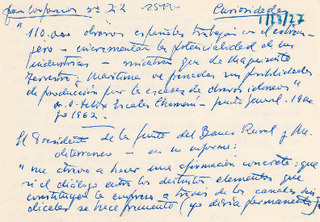 Curiosidades
"110.000 obreros españoles trabajan en el extran-
jero — incrementan la potencialidad de sus
industrias — mientras que de Maquinista
Terrestre y Marítima ve frenadas sus posibilidades
de producción por la escasez de obreros idóneos"
Junta General
1962.
El Presidente de la Junta del Banco Rural y Me-
diterraneo — en su informe:
"me atrevo a hacer una afirmación concreta: que
si el diálogo entre los distintos elementos que
constituyen la empresa a través de los canales sin-
dicales se hace frecuente (yo diría permanente)